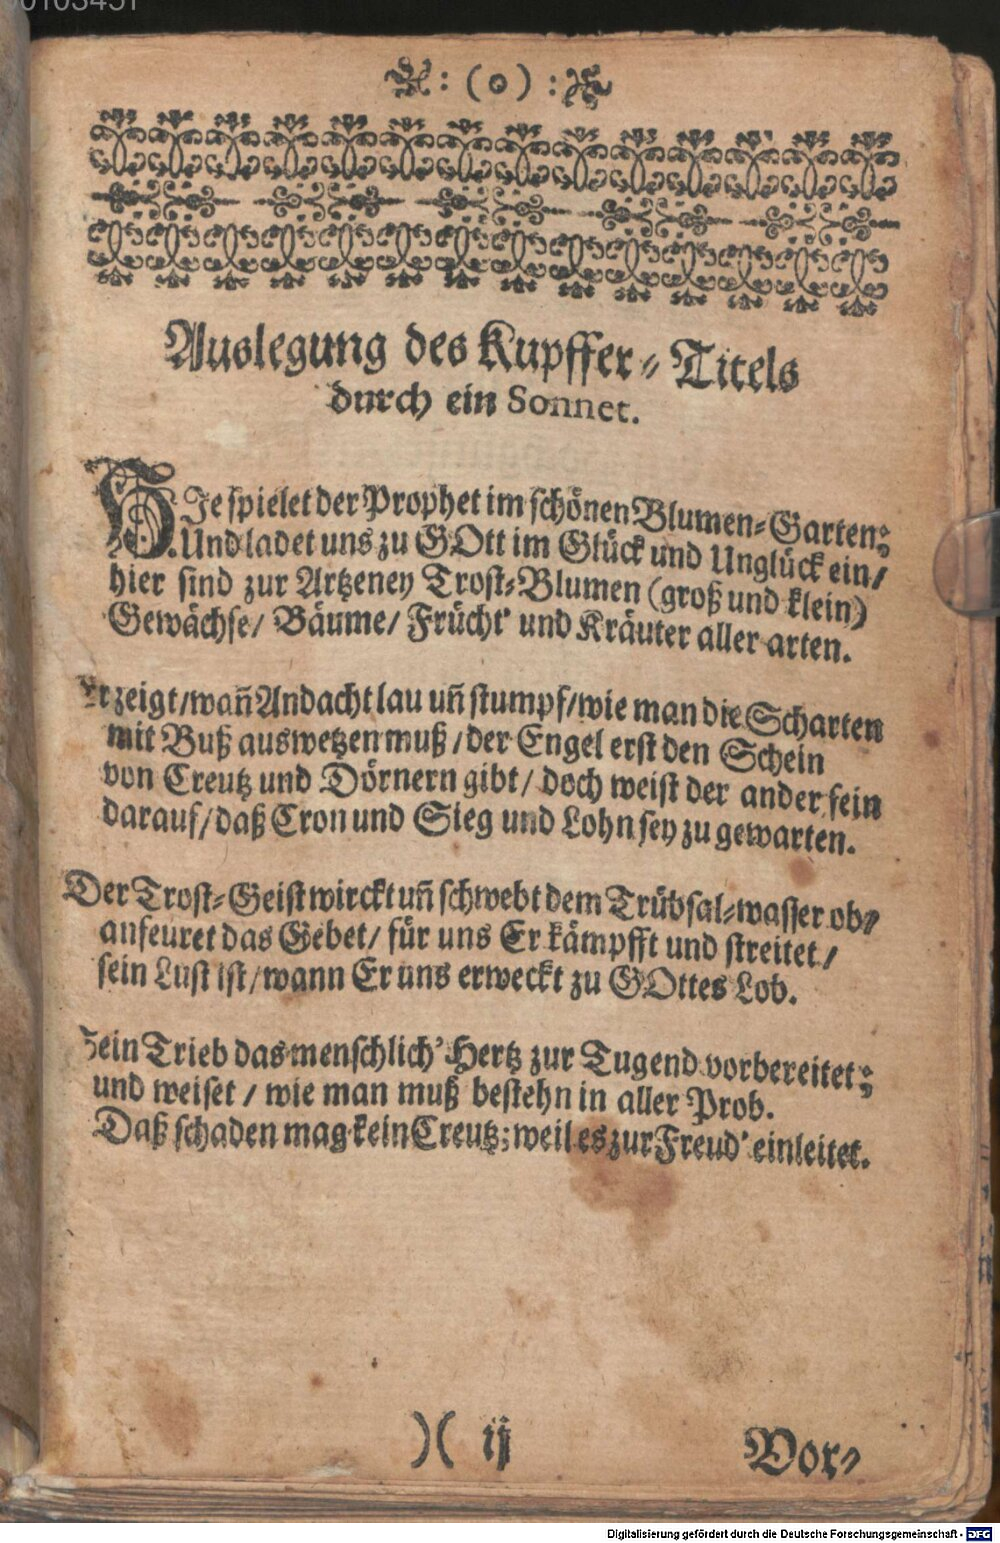 00103451
:(o):
Auslegung des Kupffer-Titels
durch ein Sonnet.
HIe spielet der Prophet im schönen Blumen-Garten;
Und ladet uns zu GOtt im Glück und Unglück ein/
hier sind zur Artzeney Trost-Blumen (groß und klein)
Gewächse/ Bäume/ Frücht' und Kräuter aller arten.
Er zeigt/wañ Andacht lau uñ stumpf/wie man die Scharten
mit Buß auswetzen muß/der Engel erst den Schein
von Creutz und Dörnern gibt/ doch weist der ander fein
darauf/daß Cron und Sieg und Lohn sey zu gewarten.
Der Trost-Geist wirckt uñ schwebt dem Trübsal-wasser ob/
anfeuret das Gebet/ für uns Er kämpfft und streitet/
sein Lust ist/wann Er uns erweckt zu GOttes Lob.
Sein Trieb das menschlich' Hertz zur Tugend vorbereitet;
und weiset/ wie man muß bestehn in aller Prob.
Daß schaden mag kein Creutz; weil es zur Freud' einleitet.
)( ij
Vor-
Digitalisierung gefördert durch die Deutsche Forschungsgemeinschaft - DFG